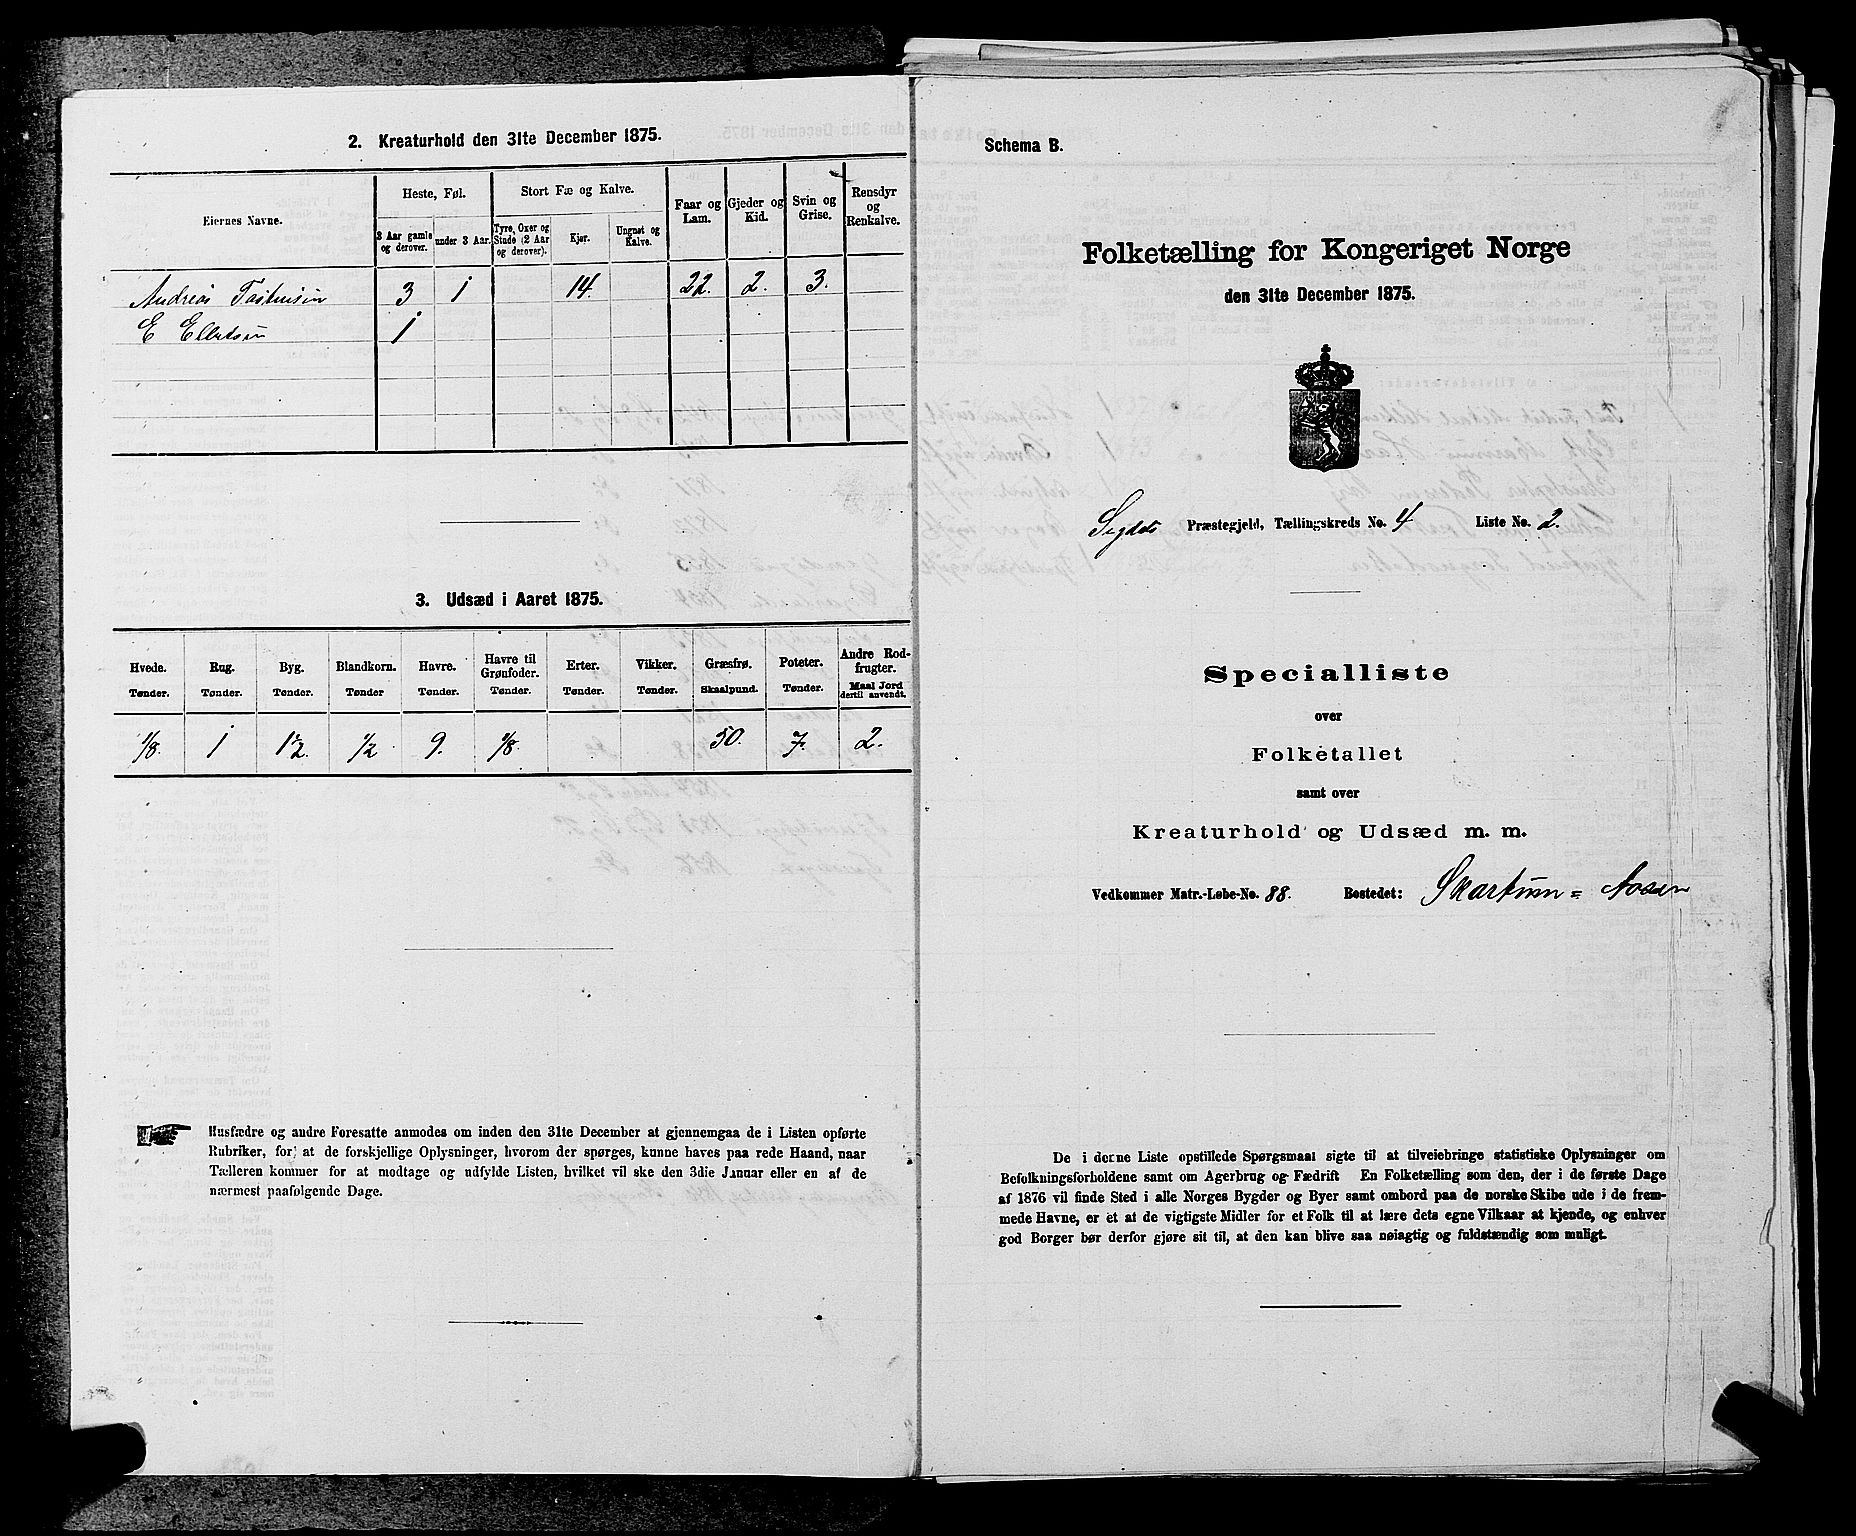 2. Kreaturhold den 31te December 1875.
Eiernes Navne.
Heste, Føl.
3 Aar gamle og derover.
under 3 Aar.
Stort Fæ og Kalve.
Tyre, Oxer og Stude (2 Aar og derover).
Kjør.
Ungnøt og Kalve.
Faar og Lam.
Gjeder og Kid.
Svin og Grise.
Rensdyr og Renkalve.
Andreas 3 1 14. 22. 2. 3.
E Ellefsen 1
3. Udsæd i Aaret 1875.
Hvede. Rug. Byg. Blandkorn. Havre. Havre til Grønfoder. Erter. Vikker. Græsfrø. Poteter. Andre Rodfrugter.
Tønder. Tønder. Tønder. Tønder Tønder. Tønder. Tønder. Tønder. Skaalpund. Tønder. Maal Jord dertil anvendt.
1/8. 1 1 1/2. 1/2 9. 1/8. 50. 7. 2.
Husfædre og andre Foresatte anmodes om inden den 31te December at gjennemgaa de i Listen opførte
Rubriker, for at de forskjellige Oplysninger, hvorom der spørges, kunne haves paa rede Haand, naar
Tælleren kommer for at modtage og udfylde Listen, hvilket vil ske den 3die Januar eller en af de
nærmest paafølgende Dage.
Schema B.
Folketælling for Kongeriget Norge
den 31te December 1875.
Sigdal Præstegjeld, Tællingskreds No. 4 Liste No. 2.
Specialliste
over
Folketallet
samt over
Kreaturhold og Udsæd m. m.
Vedkommer Matr.-Løbe-No. 88. Bostedet: Skartum = Aasen
De i denne Liste opstillede Spørgsmaal sigte til at tilveiebringe statistiske Oplysninger om
Befolkningsforholdene samt om Agerbrug og Fædrift En Folketælling som den, der i de første Dage
af 1876 vil finde Sted i alle Norges Bygder og Byer samt ombord paa de norske Skibe ude i de frem-
mede Havne, er et at de vigtigste Midler for et Folk til at lære dets egne Vilkaar at kjende, og enhver
god Borger bør derfor gjøre sit til, at den kan blive saa nøiagtig og fuldstændig som muligt.